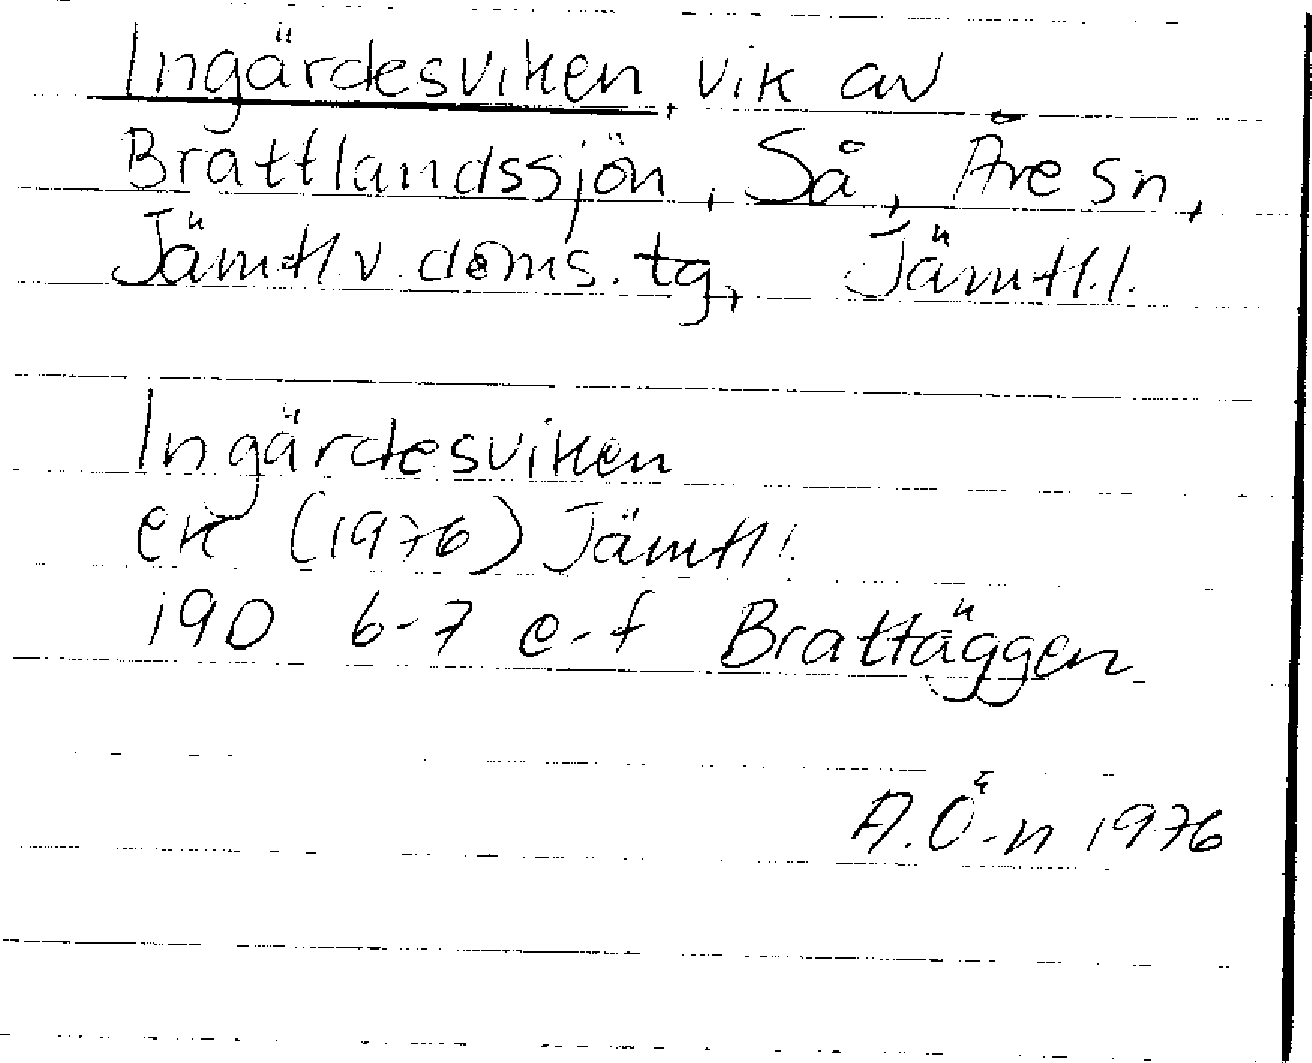 Ingärdesviken, vik av
Brattlandssjön, Så, Åre sn,
Jämtl v. doms. tg, Jämtl. l.
Ingärdesviken
ek (1976) Jämtl l.
19D 6-7 e-f Brattäggen
A. Ö-n 1976